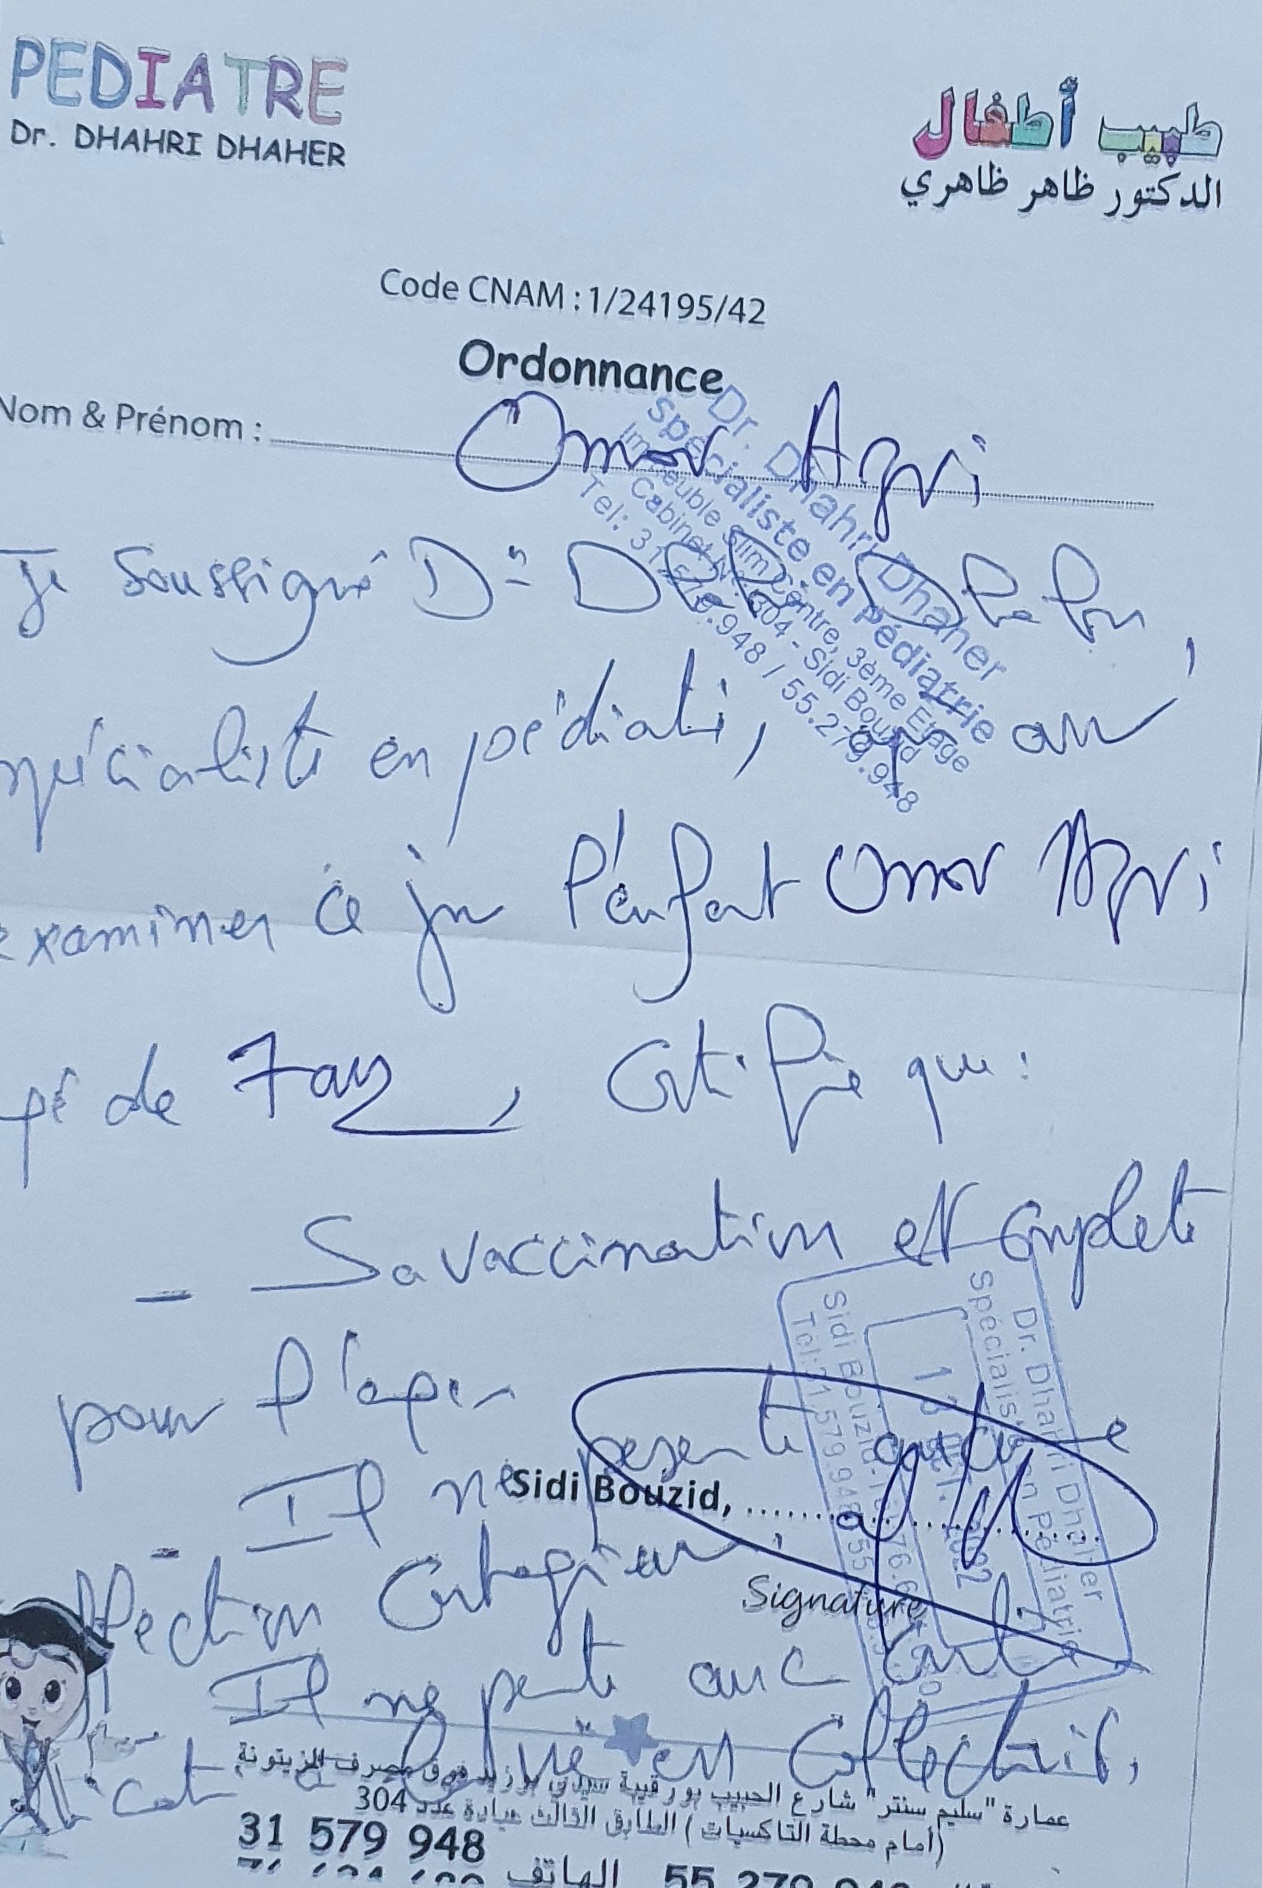 PEDIATRE
Dr. DHAHRI DHAHER
طبيب أطفال
الدكتور ظاهر ظاهري
Code CNAM : 1/24195/42
Ordonnance
Nom & Prénom : Omor Azri
Dr. Dhahri Dhaher
Spécialiste en pédiatrie
Immeuble Slim Centre, 3ème Etage
Cabinet N° 304 - Sidi Bouzid
Tel: 31.579.948 / 55.279.948
Je soussigné Dr
spécialiste en pédiatri,
examiner ce jr l'enfant Omor Azri
gé de 7 ans, certifie que :
- Sa vaccination est complete
pour l'age
- Il ne présente aucune
ffection contagieuse
Il ne porte aucune
en collectivité.
Sidi Bouzid,
Signature
Dr. Dhahri Dhaher
Spécialiste en Pédiatrie
عمارة "سليم سنتر" شارع الحبيب بورقيبة سيدي بوزيد فوق مصرف الزيتونة
(أمام محطة التاكسيات) الطابق الثالث عيادة عدد 304
31 579 948
الهاتف